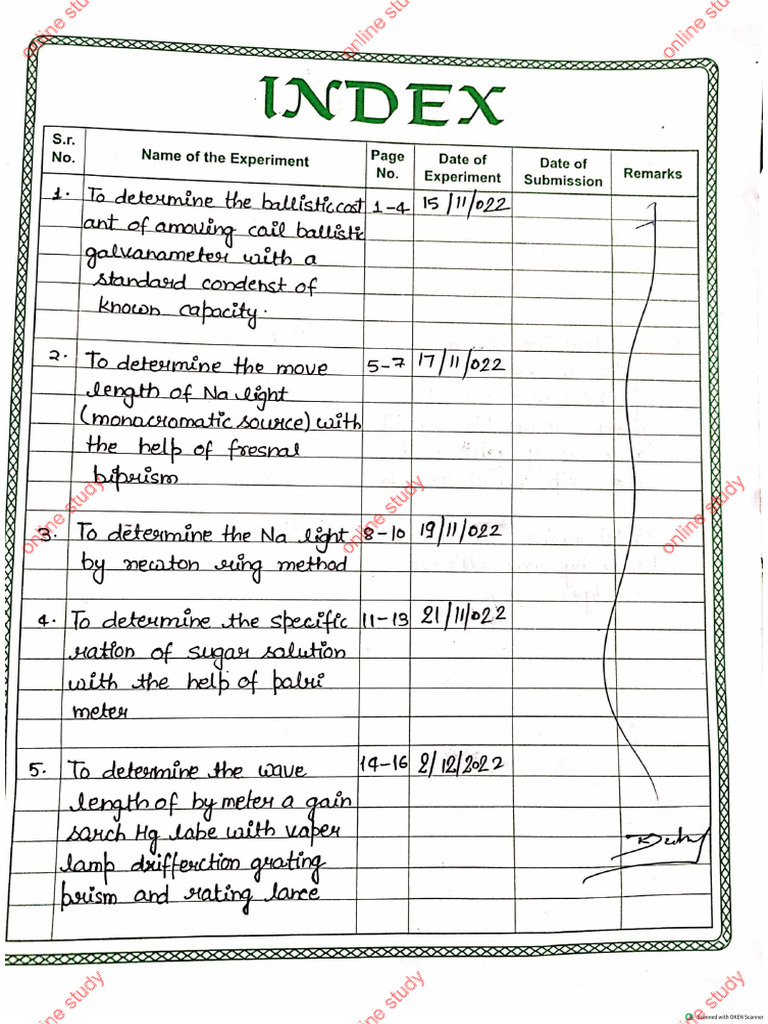 online study online study online study
INDEX
S.r. No. Name of the Experiment Page No. Date of Experiment Date of Submission Remarks
1. To determine the ballistic cost 1-4 15/11/022
ant of amoving cail ballistic
galvanameter with a
standard condenst of
known capacity.
2. To determine the move 5-7 17/11/022
length of Na light
(monacromatic source) with
the help of fresnal
biprism
online study online study online study
3. To determine the Na light 8-10 19/11/022
by newton ring method
4. To determine the specific 11-13 21/11/022
ration of sugar salution
with the help of palri
meter
5. To determine the wave 14-16 2/12/2022
length of by meter a gain
sarch Hg labe with vaper
lamp drifferction grating
prism and rating lance
online study online study online study
Scanned with OKEN Scanner